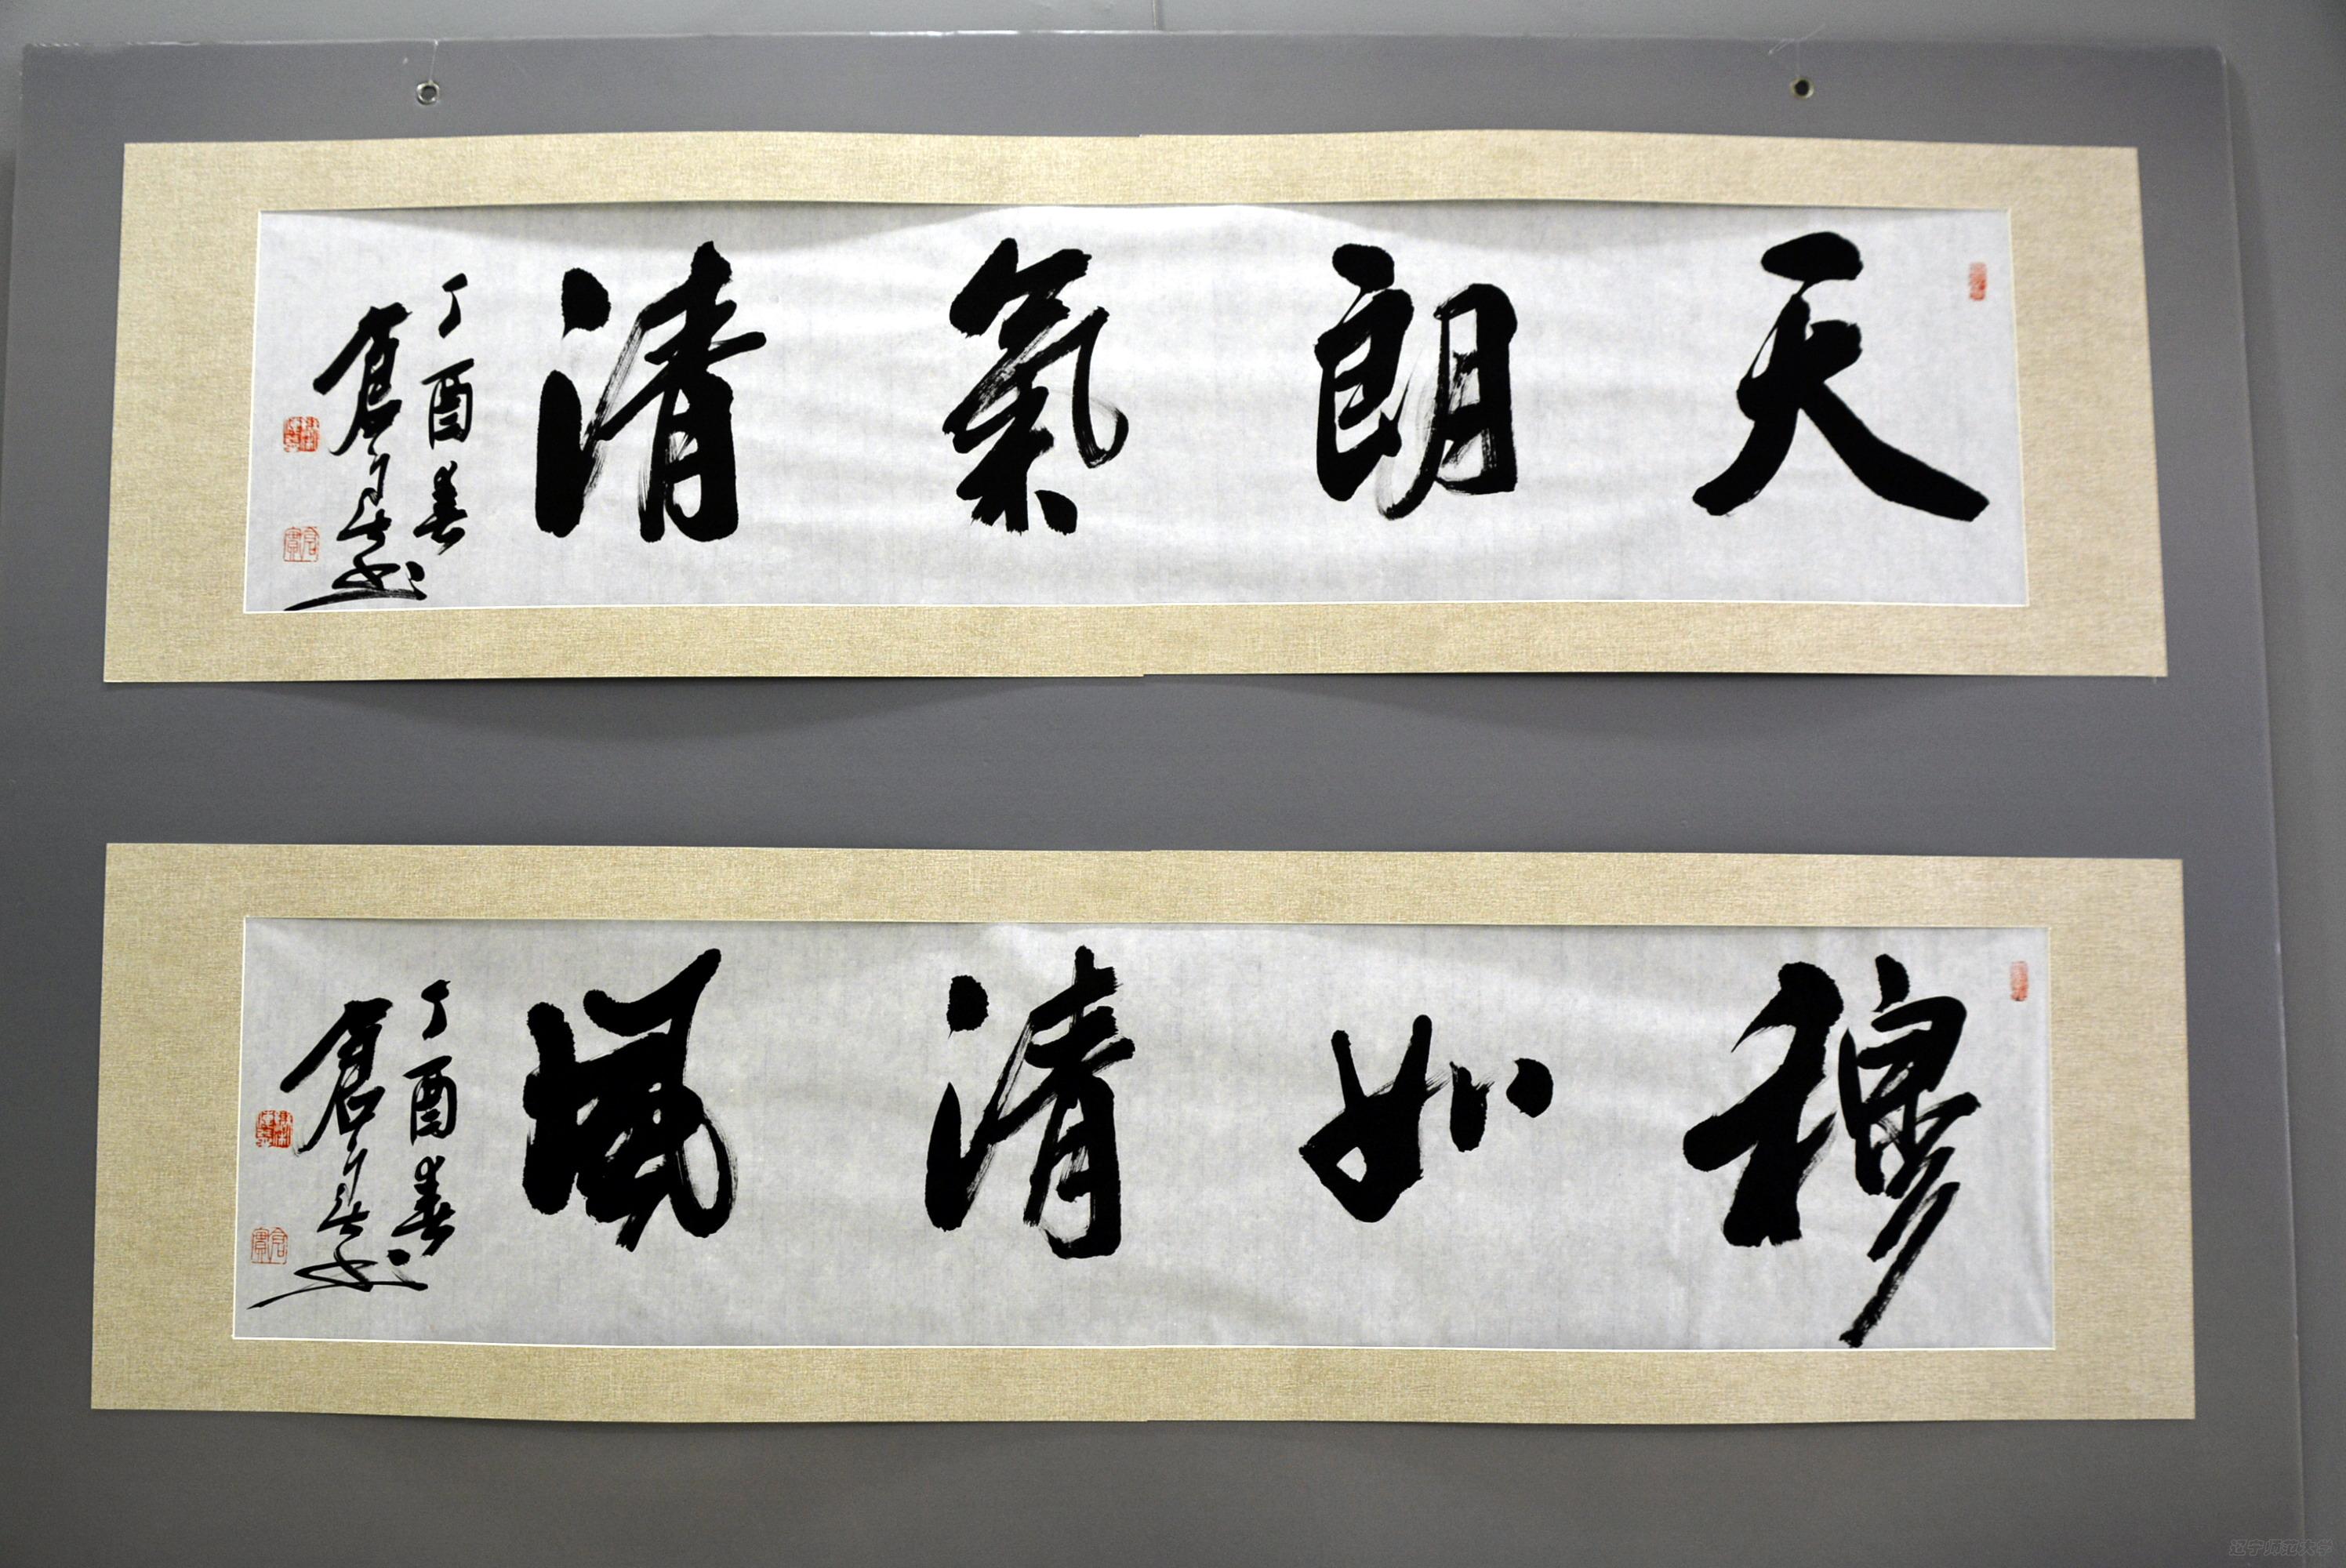 天朗氣清
丁酉春
穆如清風
丁酉春
辽宁师范大学